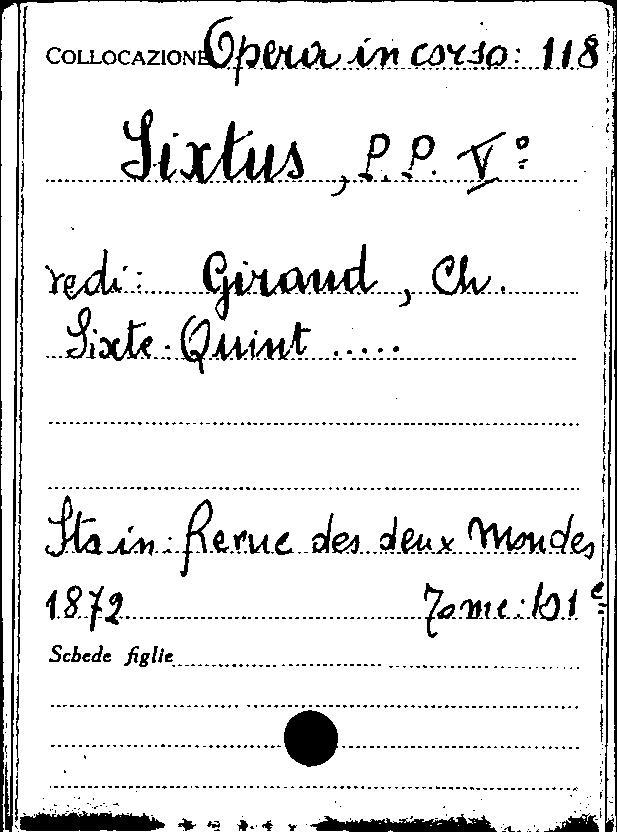 COLLOCAZIONE Opera in corso: 118
Sixtus, P.P. V°
vedi: Giraud, Ch.
Sixte-Quint .....
Sta in: Revue des deux Mondes,
1872 Tome: 101e
Schede figlie